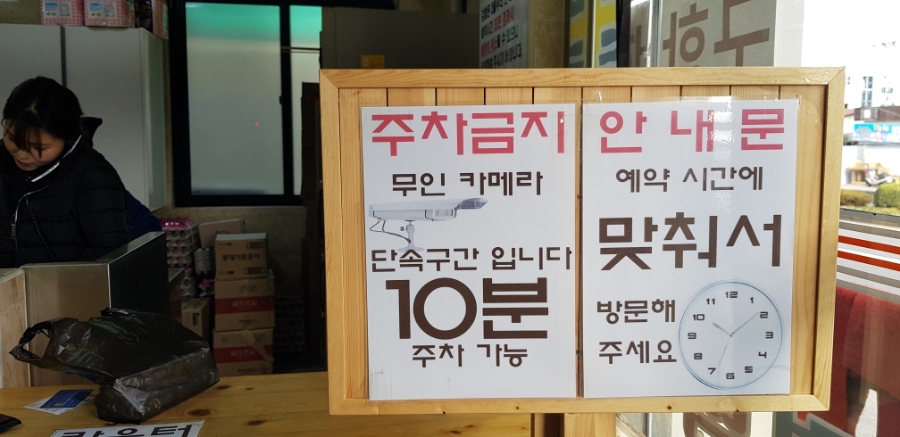 주차금지
무인 카메라
단속구간 입니다
10분
주차 가능
안내문
예약 시간에
맞춰서
방문해
주세요
12
11
1
10
2
9
3
8
4
7
5
6